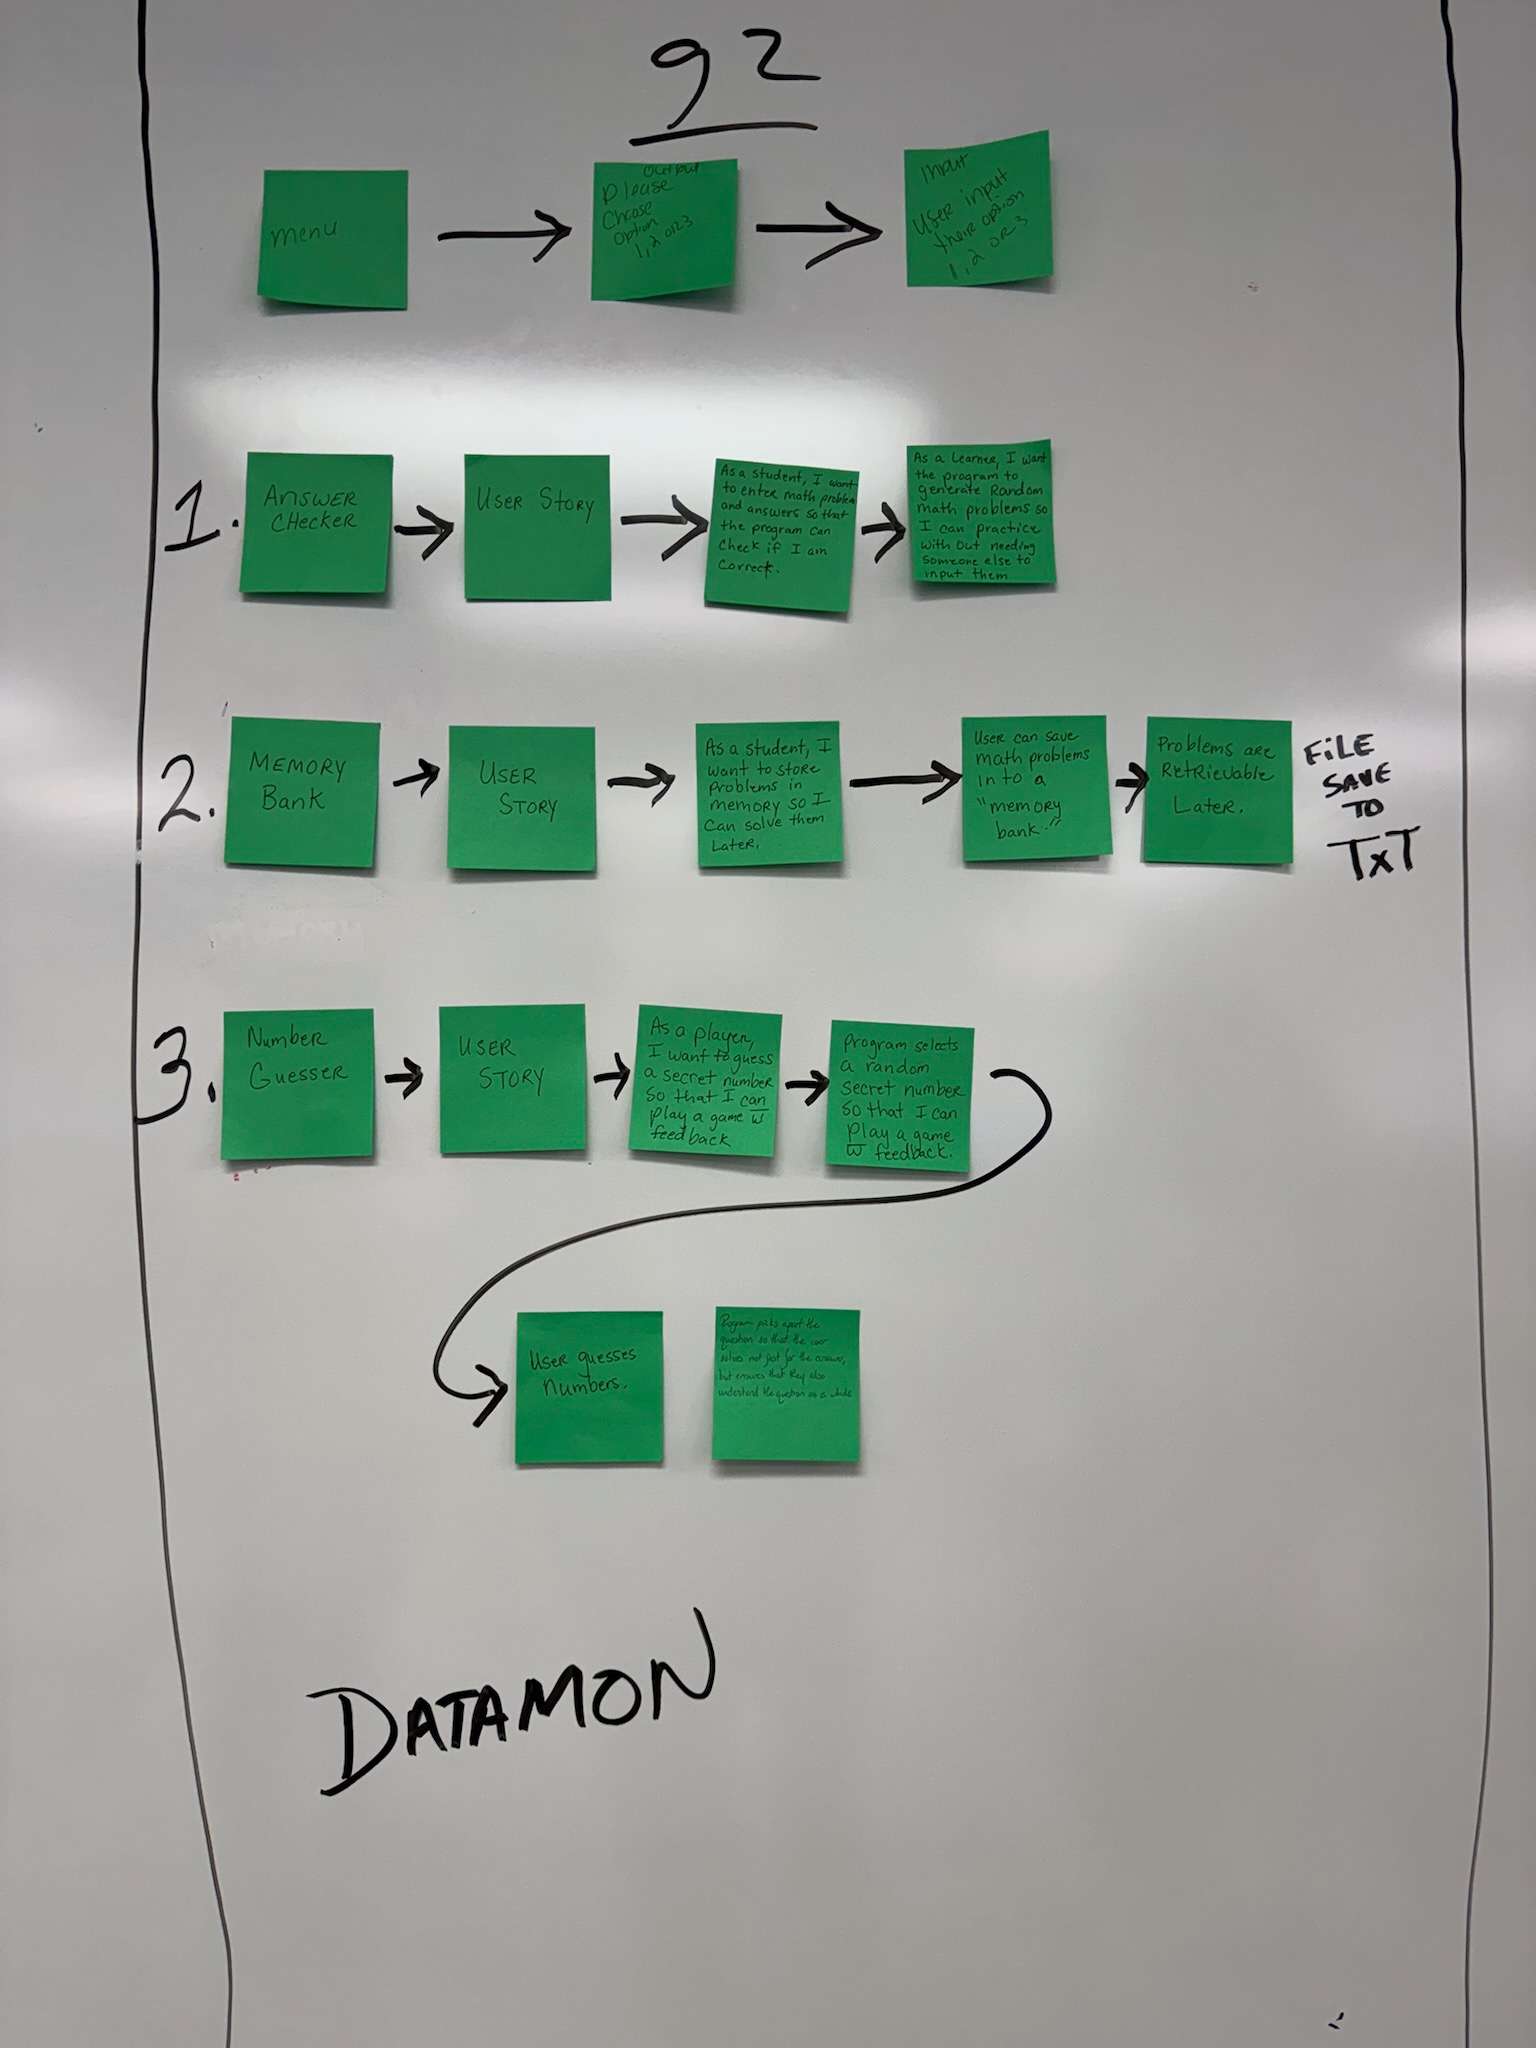 g2
menu
output
Please
Choose
option
1, 2 or 3
Input
User input
their option
1, 2 or 3
1.
Answer
Checker
User Story
As a student, I want
to enter math problem
and answers so that
the program can
check if I am
correct.
As a Learner, I want
the program to
generate Random
math problems so
I can practice
with out needing
someone else to
input them
2.
Memory
Bank
User
Story
As a student, I
want to store
problems in
memory so I
can solve them
Later.
User can save
math problems
in to a
"memory
bank."
Problems are
Retrievable
Later.
File
Save
to
TxT
3.
Number
Guesser
User
Story
As a player,
I want to guess
a secret number
so that I can
play a game w̅
feedback
Program selects
a random
secret number
so that I can
play a game
w̅ feedback.
User guesses
numbers.
Program picks apart the
question so that the user
solves not just for the answer,
but ensures that they also
understand the question as a whole
DATAMON